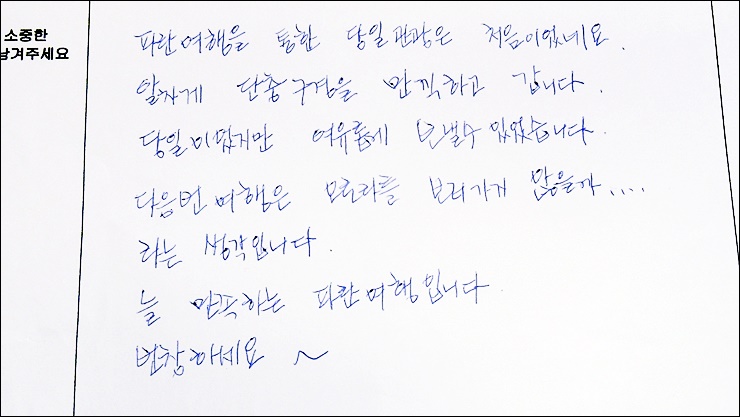 소중한
남겨주세요
파란여행을 통한 당일관광은 처음이었네요.
알차게 단풍구경을 만끽하고 갑니다.
당일이었지만 여유롭게 보낼수 있었습니다.
다음번 여행은 오로라를 보러가게 않을까....
라는 생각입니다.
늘 만족하는 파란여행입니다.
번창하세요 ~